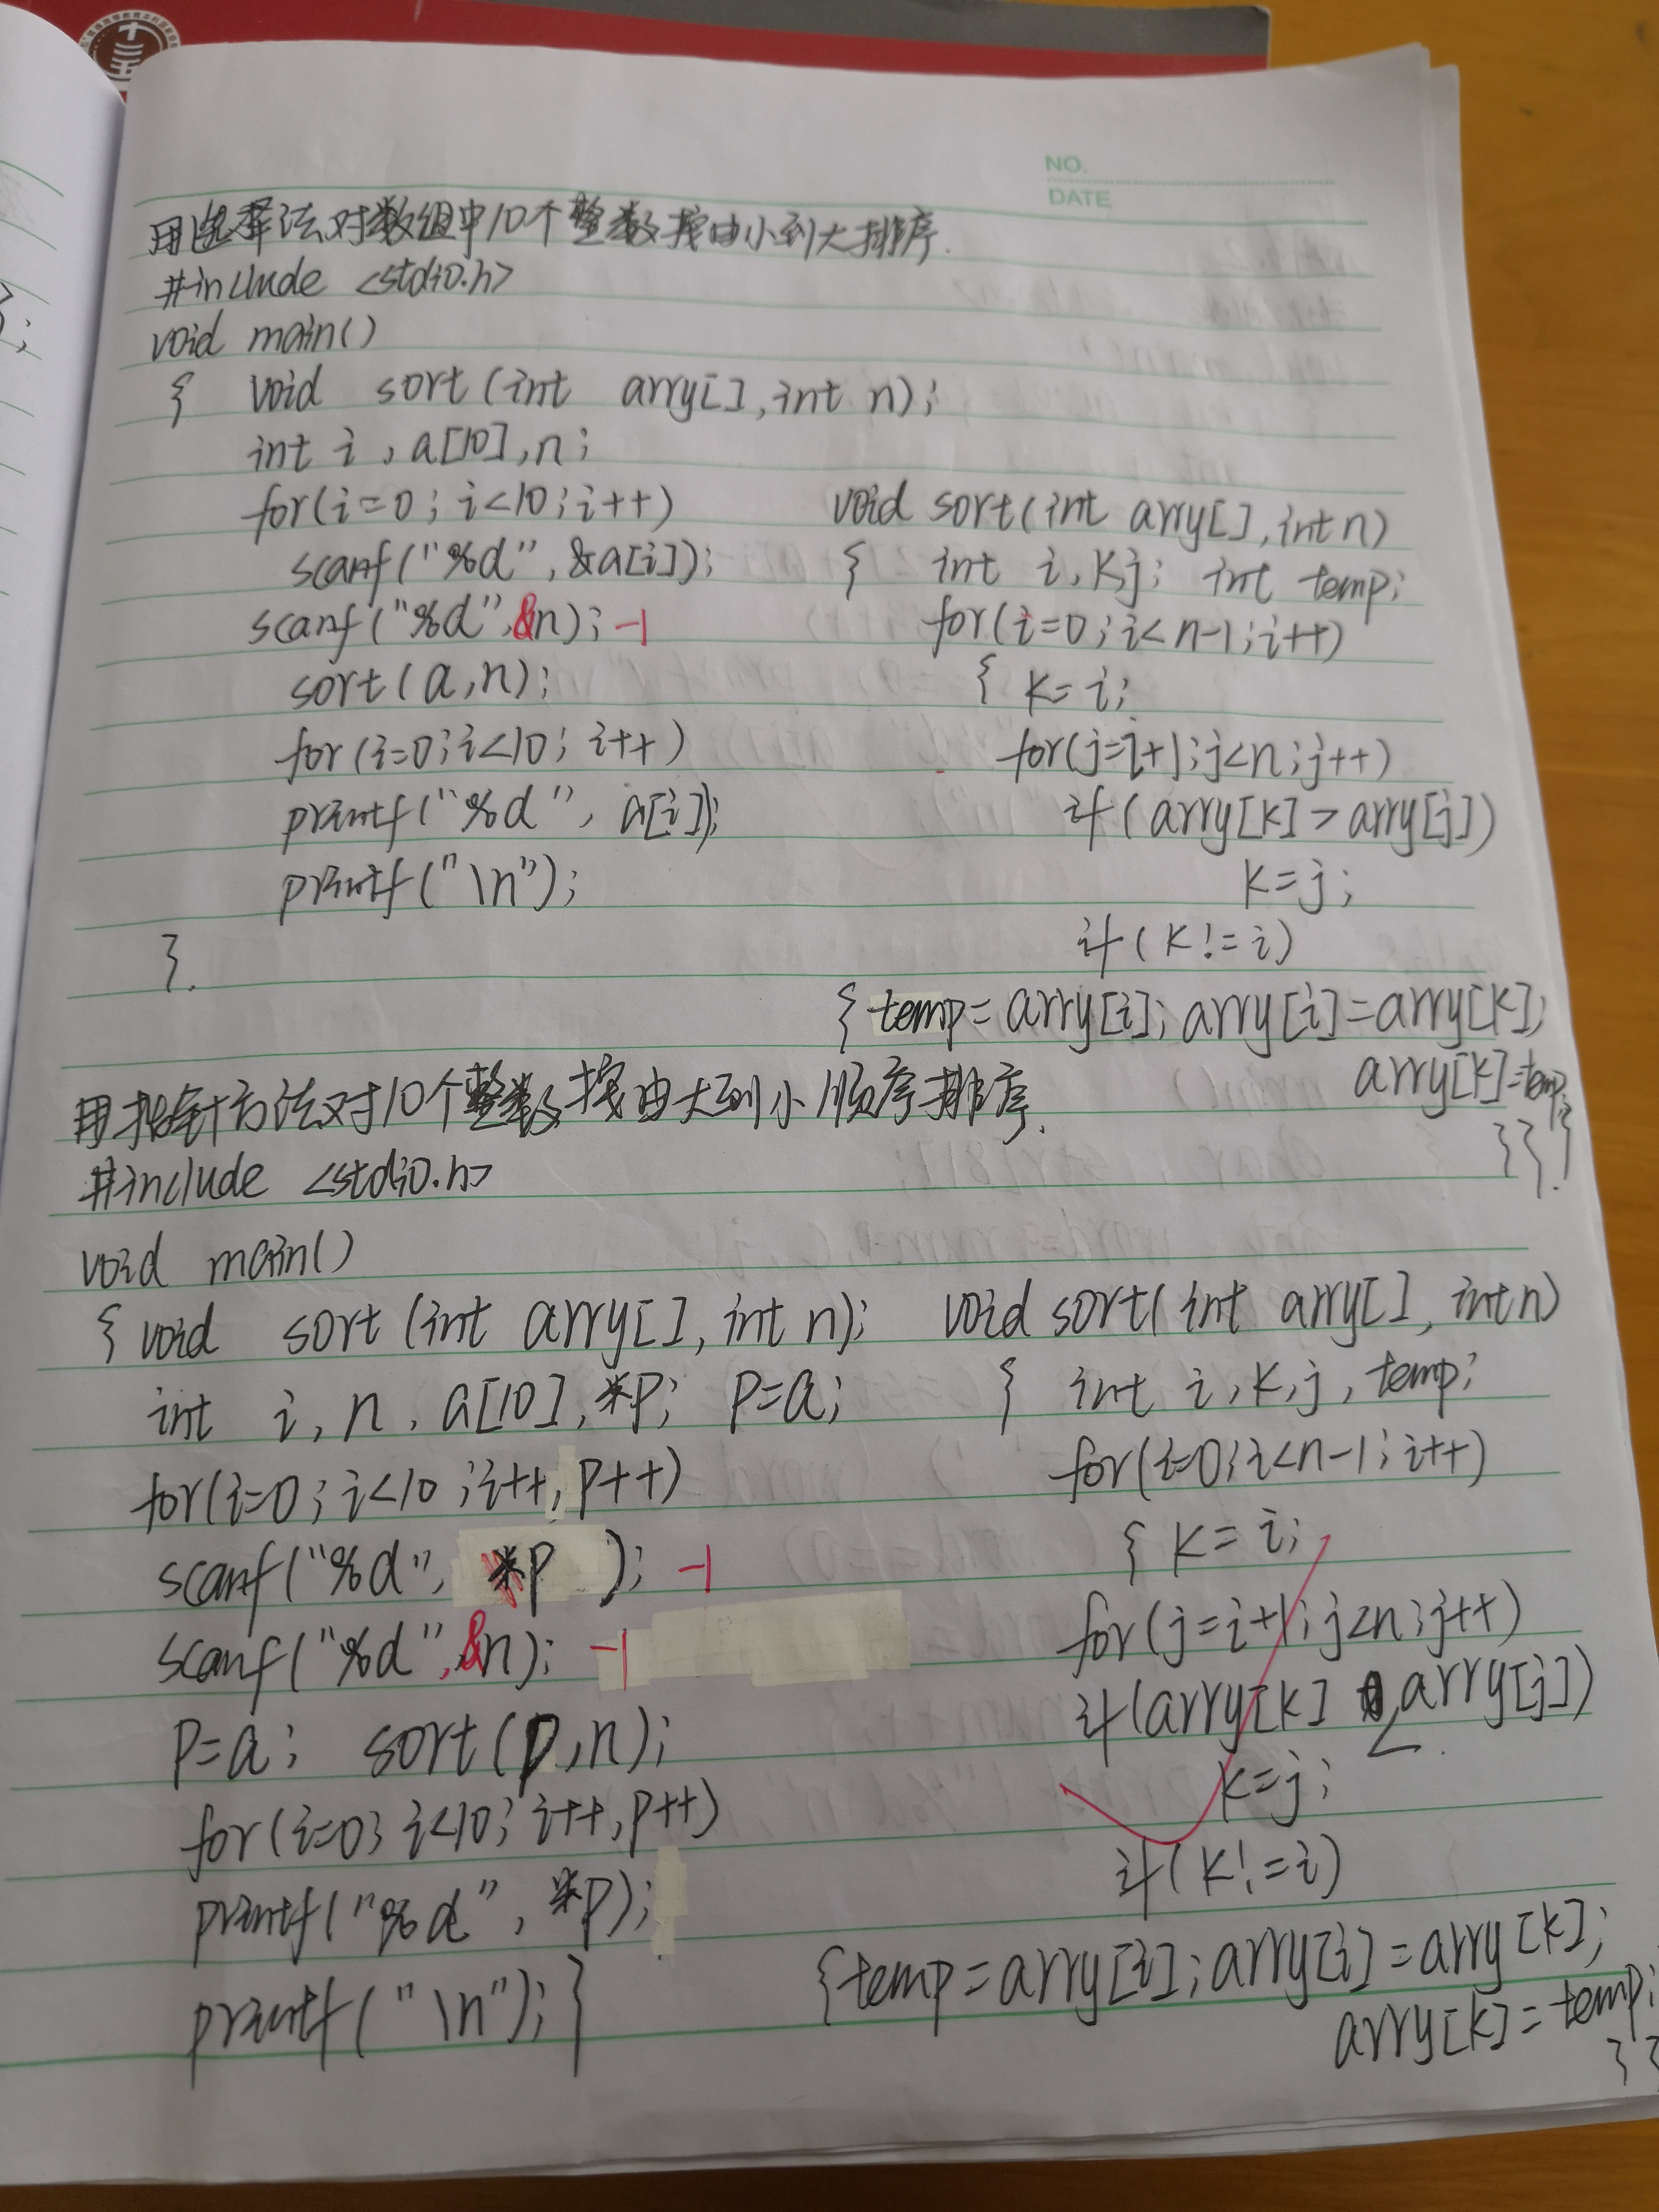 NO.
DATE
用选择法对数组中10个整数按由小到大排序.
#include <stdio.h>
void main()
{ void sort(int arry[],int n);
int i,a[10],n;
for(i=0;i<10;i++)
scanf("%d",&a[i]);
scanf("%d",&n); -1
sort(a,n);
for(i=0;i<10;i++)
printf("%d",a[i]);
printf("\n");
}.
void sort(int arry[],int n)
{ int i,k,j; int temp;
for(i=0;i<n-1;i++)
{ k=i;
for(j=i+1;j<n;j++)
if(arry[k]>arry[j])
k=j;
if(k!=i)
{temp=arry[i];arry[i]=arry[k];
arry[k]=temp;
}}}.
用指针方法对10个整数按由大到小顺序排序.
#include <stdio.h>
void main()
{void sort(int arry[],int n);
int i,n,a[10],*p; p=a;
for(i=0;i<10;i++,p++)
scanf("%d", *p ); -1
scanf("%d",&n); -1
p=a; sort(p,n);
for(i=0;i<10;i++,p++)
printf("%d",*p);
printf("\n");}
void sort(int arry[],int n)
{ int i,k,j,temp;
for(i=0;i<n-1;i++)
{ k=i;
for(j=i+1;j<n;j++)
if(arry[k]<arry[j])
k=j;
if(k!=i)
{temp=arry[i];arry[i]=arry[k];
arry[k]=temp;
}}